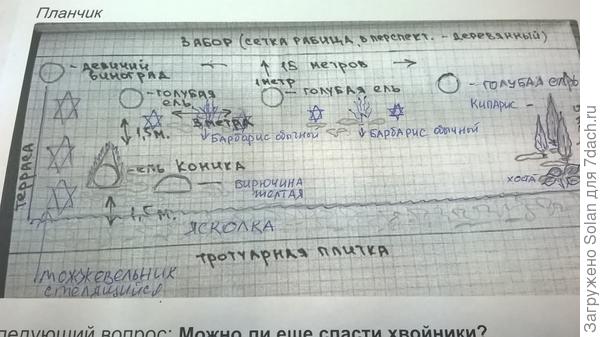 Планчик
ЗАБОР (СЕТКА РАБИЦА, В ПЕРСПЕКТ. - ДЕРЕВЯННЫЙ)
- ДЕВИЧИЙ
ВИНОГРАД
15 МЕТРОВ
1 МЕТР
- ГОЛУБАЯ
ЕЛЬ
- ГОЛУБАЯ ЕЛЬ
- ГОЛУБАЯ ЕЛЬ
КИПАРИС -
3 МЕТРА
1,5 М.
БАРБАРИС ОБЫЧНЫЙ
БАРБАРИС ОБЫЧНЫЙ
ТЕРРАСА
- ЕЛЬ КОНИКА
БИРЮЧИНА
ЖЕЛТАЯ
ХОСТА
1,5 М.
ЯСКОЛКА
ТРОТУАРНАЯ ПЛИТКА
МОЖЖЕВЕЛЬНИК
СТЕЛЯЩИЙСЯ
ледующий вопрос: Можно ли еще спасти хвойники?
Загружено Solan для 7dach.ru